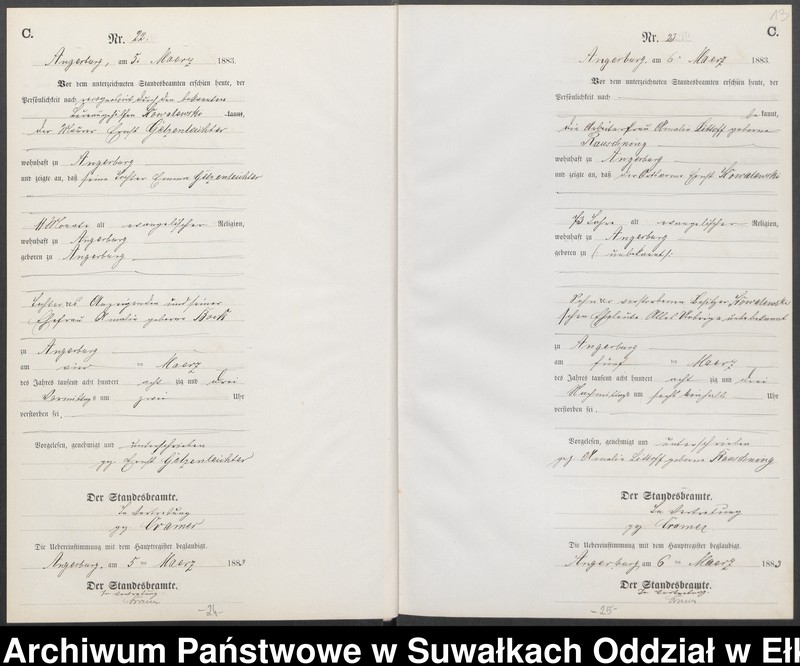 C.
Nr. 22.
Angerburg, am 5. Maerz 1883.
Vor dem unterzeichneten Standesbeamten erschien heute, der
Persönlichkeit nach durch den bekannten
Kowalewski kannt,
der Maurer Ernst Götzenleichter
wohnhaft zu Angerburg
und zeigte an, daß seine Tochter Emma Götzenleichter
11 Monate alt evangelischer Religion,
wohnhaft zu Angerburg
geboren zu Angerburg
Tochter des Anzeigenden und seiner
Ehefrau Amalie geborne Bock
zu Angerburg
am vier ten Maerz
des Jahres tausend acht hundert acht zig und drei
Vormittags um zwei Uhr
verstorben sei.
Vorgelesen, genehmigt und unterschrieben
gez. Ernst Götzenleichter
Der Standesbeamte.
In Vertretung
gez. Cramer
Die Uebereinstimmung mit dem Hauptregister beglaubigt.
Angerburg, am 5 ten Maerz 1883
Der Standesbeamte.
In Vertretung
Cramer
-24-
13
C.
Nr. 23
Angerburg, am 6. Maerz 1883.
Vor dem unterzeichneten Standesbeamten erschien heute, der
Persönlichkeit nach
be kannt,
die Arbeiterfrau Amalie geborne
Rauschning
wohnhaft zu Angerburg
und zeigte an, daß der Ortsarme Ernst Kowalewski
73 Jahre alt evangelischer Religion,
wohnhaft zu Angerburg
geboren zu (: unbekannt :)
Sohn der verstorbenen Besitzer Kowalewski
schen Eheleute. Alles Uebrige unbekannt
zu Angerburg
am fünf ten Maerz
des Jahres tausend acht hundert acht zig und drei
Nachmittags um sechs einhalb Uhr
verstorben sei.
Vorgelesen, genehmigt und unterschrieben
gez. Amalie geborne Rauschning
Der Standesbeamte.
In Vertretung
gez. Cramer
Die Uebereinstimmung mit dem Hauptregister beglaubigt.
Angerburg, am 6 ten Maerz 1883
Der Standesbeamte.
In Vertretung
Cramer
-25-
Archiwum Państwowe w Suwałkach Oddział w Eł